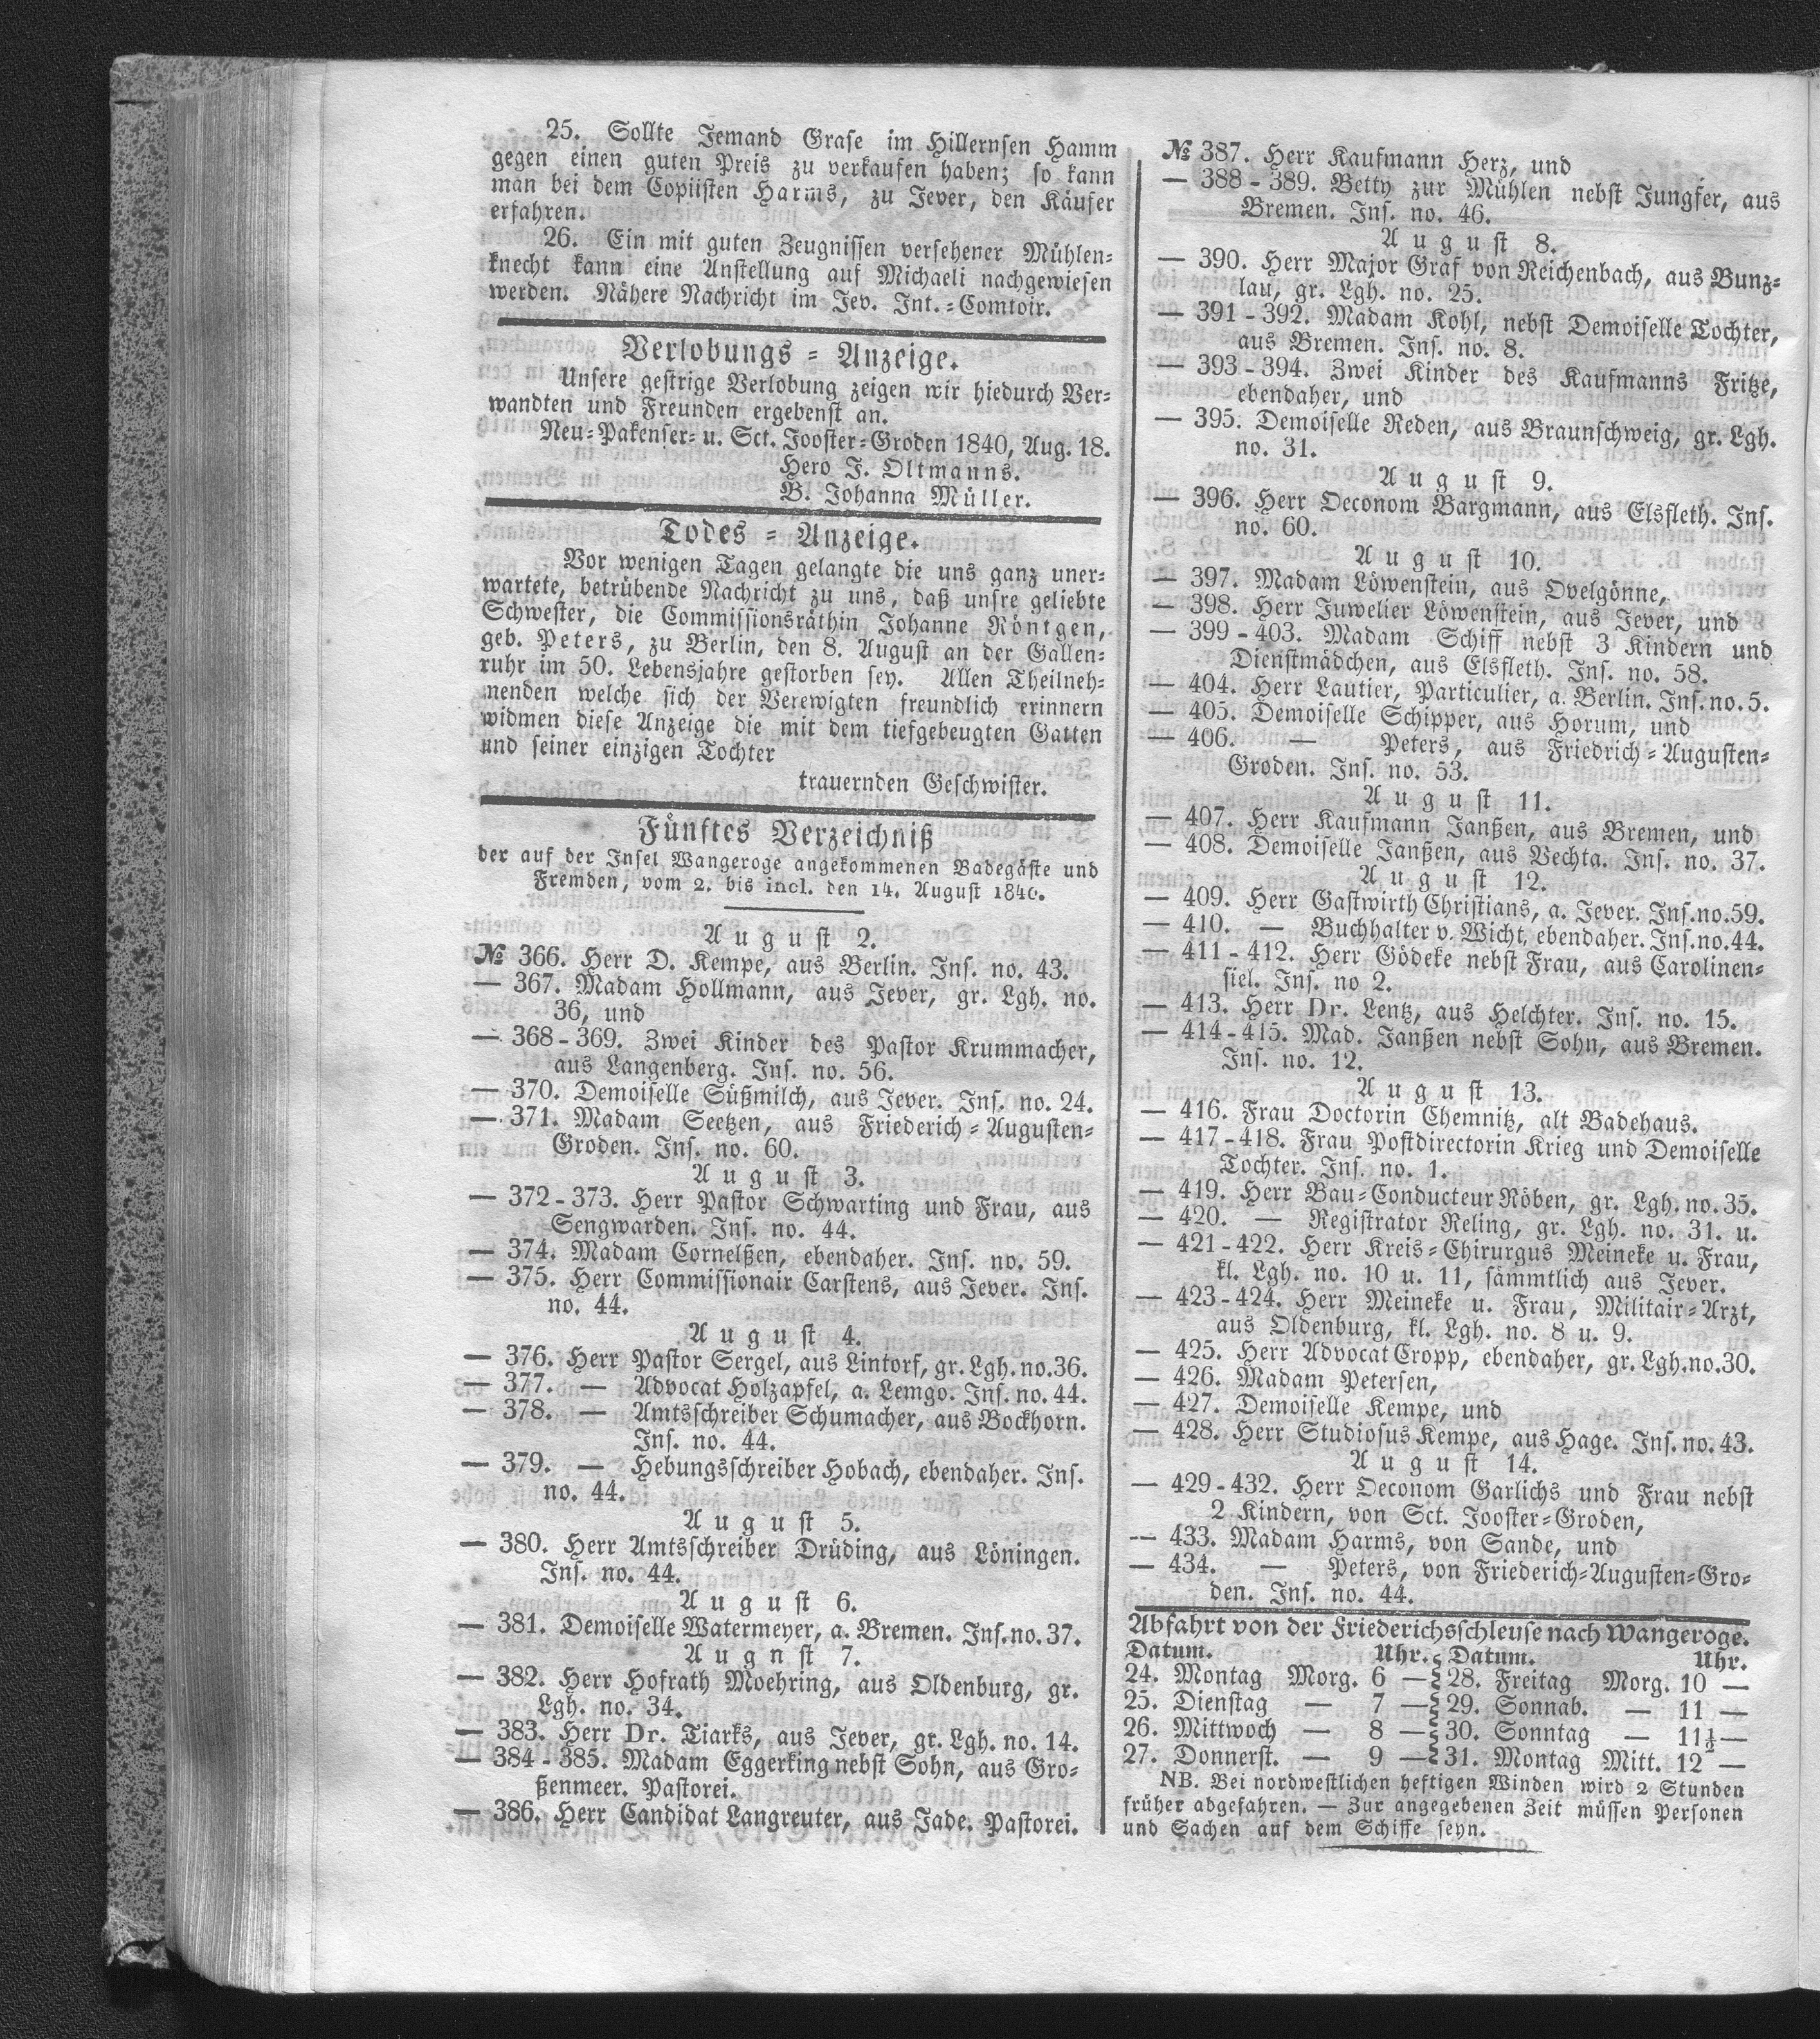 25. Sollte Jemand Grase im Hillernsen Hamm
gegen einen guten Preis zu verkaufen haben; so kann
man bei dem Copiisten Harms, zu Jever, den Käufer
erfahren.
26. Ein mit guten Zeugnissen versehener Mühlen-
knecht kann eine Anstellung auf Michaeli nachgewiesen
werden. Nähere Nachricht im Jev. Int.-Comtoir.
Verlobungs-Anzeige.
Unsere gestrige Verlobung zeigen wir hiedurch Ver-
wandten und Freunden ergebenst an.
Neu-Pakenser- u. Sct. Jooster-Groden 1840, Aug. 18.
Hero J. Oltmanns.
B. Johanna Müller.
Todes-Anzeige.
Vor wenigen Tagen gelangte die uns ganz uner-
wartete, betrübende Nachricht zu uns, daß unsre geliebte
Schwester, die Commissionsräthin Johanne Röntgen,
geb. Peters, zu Berlin, den 8. August an der Gallen-
ruhr im 50. Lebensjahre gestorben sey. Allen Theilneh-
nenden welche sich der Verewigten freundlich erinnern
widmen diese Anzeige die mit dem tiefgebeugten Gatten
und seiner einzigen Tochter
trauernden Geschwister.
Fünftes Verzeichniß
der auf der Insel Wangeroge angekommenen Badegäste und
Fremden, vom 2. bis incl. den 14. August 1840.
August 2.
№ 366. Herr D. Kempe, aus Berlin. Ins. no. 43.
— 367. Madam Hollmann, aus Jever, gr. Lgh. no.
36, und
— 368-369. Zwei Kinder des Pastor Krummacher,
aus Langenberg. Ins. no. 56.
— 370. Demoiselle Süßmilch, aus Jever. Ins. no. 24.
— 371. Madam Seetzen, aus Friederich-Augusten-
Groden. Ins. no. 60.
August 3.
— 372-373. Herr Pastor Schwarting und Frau, aus
Sengwarden. Ins. no. 44.
— 374. Madam Cornelßen, ebendaher. Ins. no. 59.
— 375. Herr Commissionair Carstens, aus Jever. Ins.
no. 44.
August 4.
— 376. Herr Pastor Sergel, aus Lintorf, gr. Lgh. no. 36.
— 377. — Advocat Holzapfel, a. Lemgo. Ins. no. 44.
— 378. — Amtsschreiber Schumacher, aus Bockhorn.
Ins. no. 44.
— 379. — Hebungsschreiber Hobach, ebendaher. Ins.
no. 44.
August 5.
— 380. Herr Amtsschreiber Drüding, aus Löningen.
Ins. no. 44.
August 6.
— 381. Demoiselle Watermeyer, a. Bremen. Ins. no. 37.
Augnst 7.
— 382. Herr Hofrath Moehring, aus Oldenburg, gr.
Lgh. no. 34.
— 383. Herr Dr. Tiarks, aus Jever, gr. Lgh. no. 14.
— 384-385. Madam Eggerking nebst Sohn, aus Gro-
ßenmeer. Pastorei.
— 386. Herr Candidat Langreuter, aus Jade. Pastorei.
№ 387. Herr Kaufmann Herz, und
— 388-389. Betty zur Mühlen nebst Jungfer, aus
Bremen. Ins. no. 46.
August 8.
— 390. Herr Major Graf von Reichenbach, aus Bunz-
lau, gr. Lgh. no. 25.
— 391-392. Madam Kohl, nebst Demoiselle Tochter,
aus Bremen. Ins. no. 8.
— 393-394. Zwei Kinder des Kaufmanns Fritze,
ebendaher, und
— 395. Demoiselle Reden, aus Braunschweig, gr. Lgh.
no. 31.
August 9.
— 396. Herr Oeconom Bargmann, aus Elsfleth. Ins.
no. 60.
August 10.
— 397. Madam Löwenstein, aus Ovelgönne,
— 398. Herr Juwelier Löwenstein, aus Jever, und
— 399-403. Madam Schiff nebst 3 Kindern und
Dienstmädchen, aus Elsfleth. Ins. no. 58.
— 404. Herr Lautier, Particulier, a. Berlin. Ins. no. 5.
— 405. Demoiselle Schipper, aus Horum, und
— 406. — Peters, aus Friedrich-Augusten-
Groden. Ins. no. 53.
August 11.
— 407. Herr Kaufmann Janßen, aus Bremen, und
— 408. Demoiselle Janßen, aus Vechta. Ins. no. 37.
August 12.
— 409. Herr Gastwirth Christians, a. Jever. Ins. no. 59.
— 410. — Buchhalter v. Wicht, ebendaher. Ins. no. 44.
— 411-412. Herr Gödeke nebst Frau, aus Carolinen-
siel. Ins. no 2.
— 413. Herr Dr. Lentz, aus Helchter. Ins. no. 15.
— 414-415. Mad. Janßen nebst Sohn, aus Bremen.
Ins. no. 12.
August 13.
— 416. Frau Doctorin Chemnitz, alt Badehaus.
— 417-418. Frau Postdirectorin Krieg und Demoiselle
Tochter. Ins. no. 1.
— 419. Herr Bau-Conducteur Röben, gr. Lgh. no. 35.
— 420. — Registrator Reling, gr. Lgh. no. 31. u.
— 421-422. Herr Kreis-Chirurgus Meineke u. Frau,
kl. Lgh. no. 10 u. 11, sämmtlich aus Jever.
— 423-424. Herr Meineke u. Frau, Militair-Arzt,
aus Oldenburg, kl. Lgh. no. 8 u. 9.
— 425. Herr Advocat Cropp, ebendaher, gr. Lgh. no. 30.
— 426. Madam Petersen,
— 427. Demoiselle Kempe, und
— 428. Herr Studiosus Kempe, aus Hage. Ins. no. 43.
August 14.
— 429-432. Herr Oeconom Garlichs und Frau nebst
2 Kindern, von Sct. Jooster-Groden,
— 433. Madam Harms, von Sande, und
— 434. — Peters, von Friederich-Augusten-Gro-
den. Ins. no. 44.
Abfahrt von der Friederichsschleuse nach Wangeroge.
Datum. Uhr. Datum. Uhr.
24. Montag Morg. 6 — 28. Freitag Morg. 10 —
25. Dienstag — 7 — 29. Sonnab. — 11 —
26. Mittwoch — 8 — 30. Sonntag — 11½ —
27. Donnerst. — 9 — 31. Montag Mitt. 12 —
NB. Bei nordwestlichen heftigen Winden wird 2 Stunden
früher abgefahren. — Zur angegebenen Zeit müssen Personen
und Sachen auf dem Schiffe seyn.